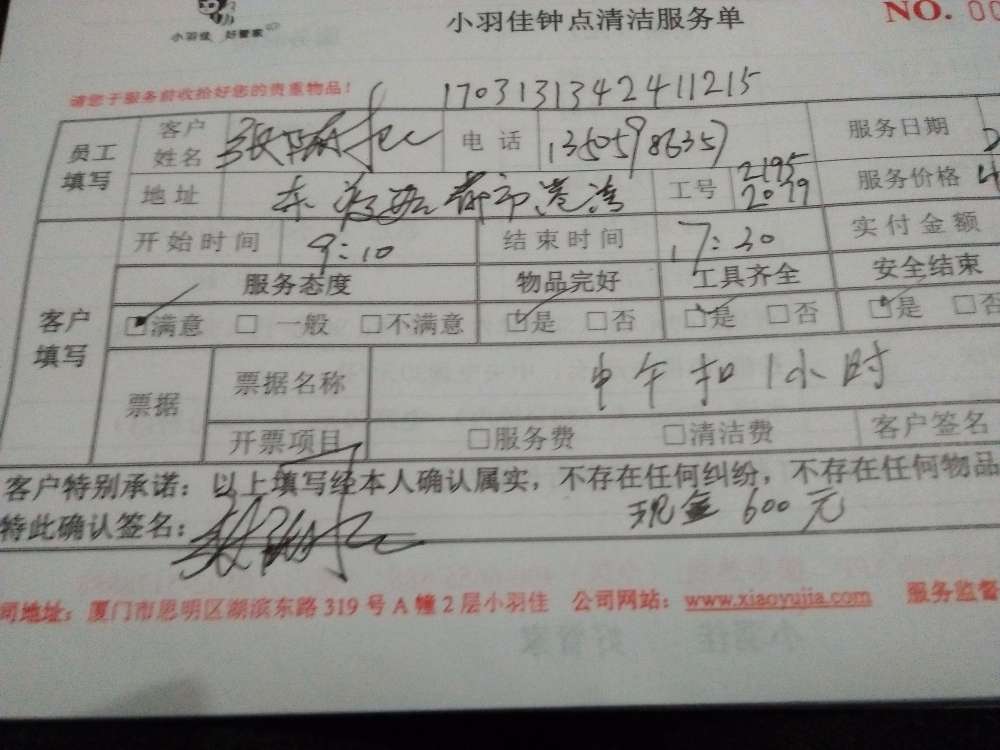 小羽佳 好管家
小羽佳钟点清洁服务单
NO. 00
请您于服务前收拾好您的贵重物品!
1703131342411215
员工填写 客户姓名 电话 13505986357 服务日期
地址 都市港湾 工号 2195 2079 服务价格
客户填写 开始时间 9:10 结束时间 17:30 实付金额
服务态度 物品完好 工具齐全 安全结束
☑满意 □一般 □不满意 ☑是 □否 ☑是 □否 ☑是 □否
票据 票据名称 中午扣1小时
开票项目 □服务费 □清洁费 客户签名
客户特别承诺:以上填写经本人确认属实,不存在任何纠纷,不存在任何物品
特此确认签名: 现金600元
司地址:厦门市思明区湖滨东路319号A幢2层小羽佳 公司网站:www.xiaoyujia.com 服务监督